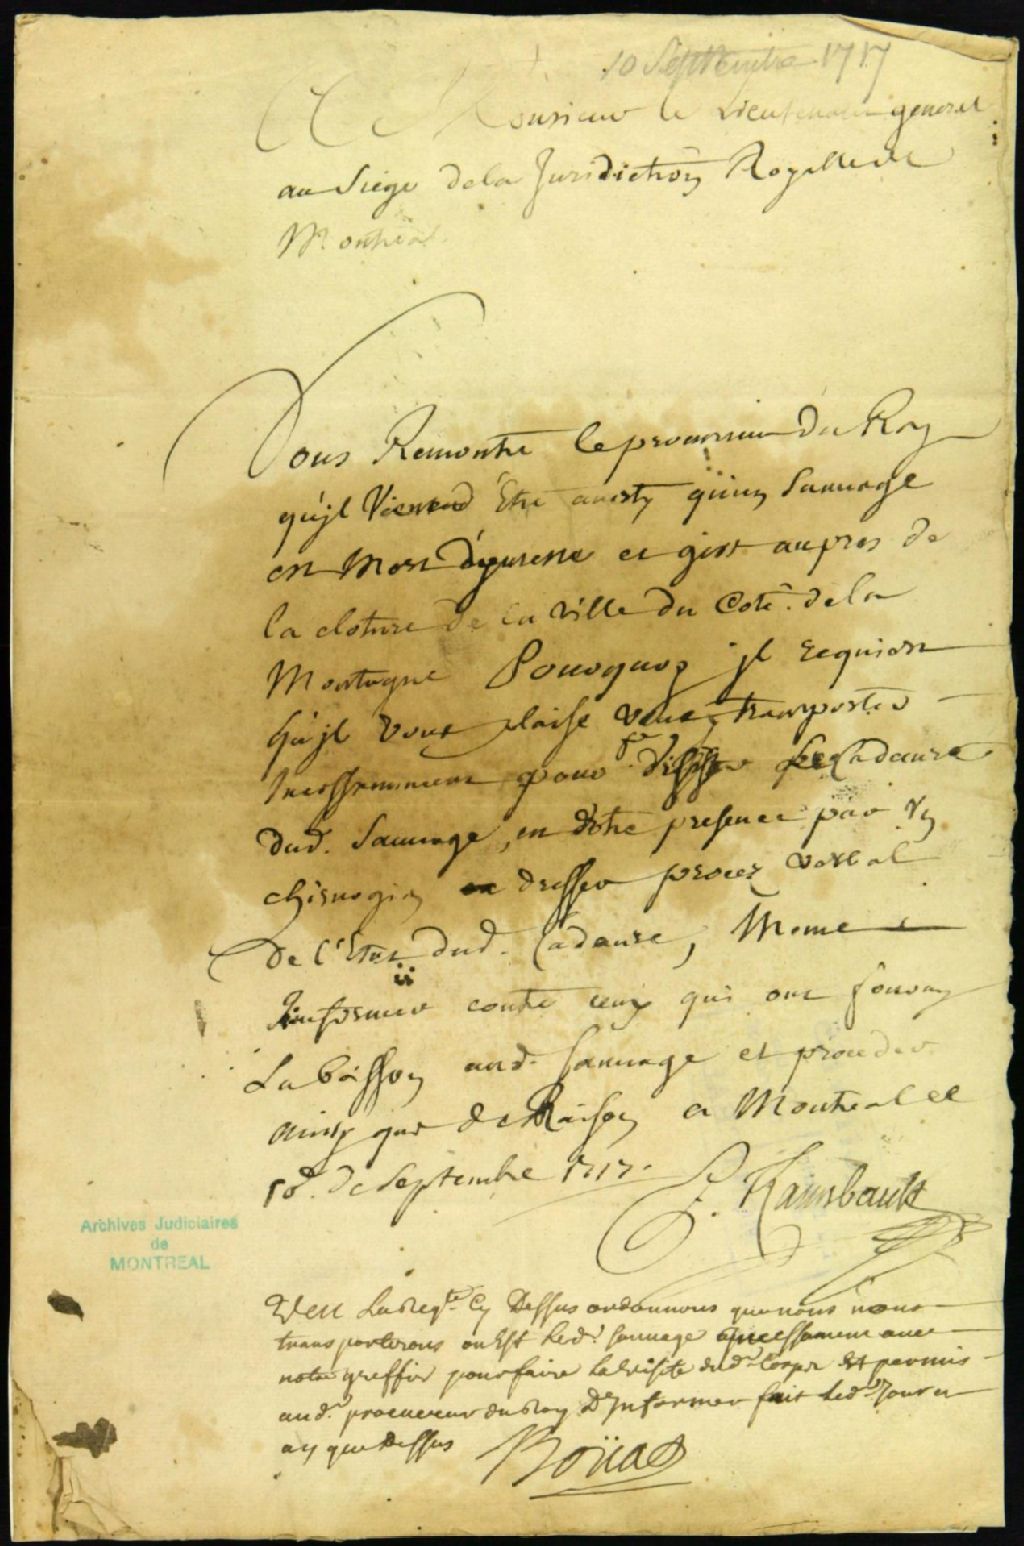 10 Septembre 1717
A Monsieur le Lieutenant general
au Siege dela Jurisdiction Royalle de
Montreal.
Vous Remontre le procureur du Roy
qu'jl Vient d'Etre averty qu'un Sauvage
est Mort d'yvresse et gist aupres de
la cloture de la Ville du Coté dela
Montagne Pourquoy jl requiert
qu'jl vous plaise vous transporter
Incessamment pour fe. visiter le Cadavre
dud. Sauvage, en vôtre presence par Un
chirurgien dresser procez verbal
De l'Etat dud. Cadavre, Meme
Informer contre ceux qui ont fourny
La boisson aud. Sauvage et proceder
ainsy que de Raison a Montreal le
10e. de Septembre 1717.
F. Raimbault
Archives Judiciaires
de
MONTREAL
Veu La Reqte. Cy Dessus ordonnons que nous nous
transporterons ou Est Led. Sauvage Incessament avec
notre greffier pour faire la visite dud. Corps Et permis
aud. procureur du Roy D'Informer fait Led. Jour et
an que Dessus
Boüat